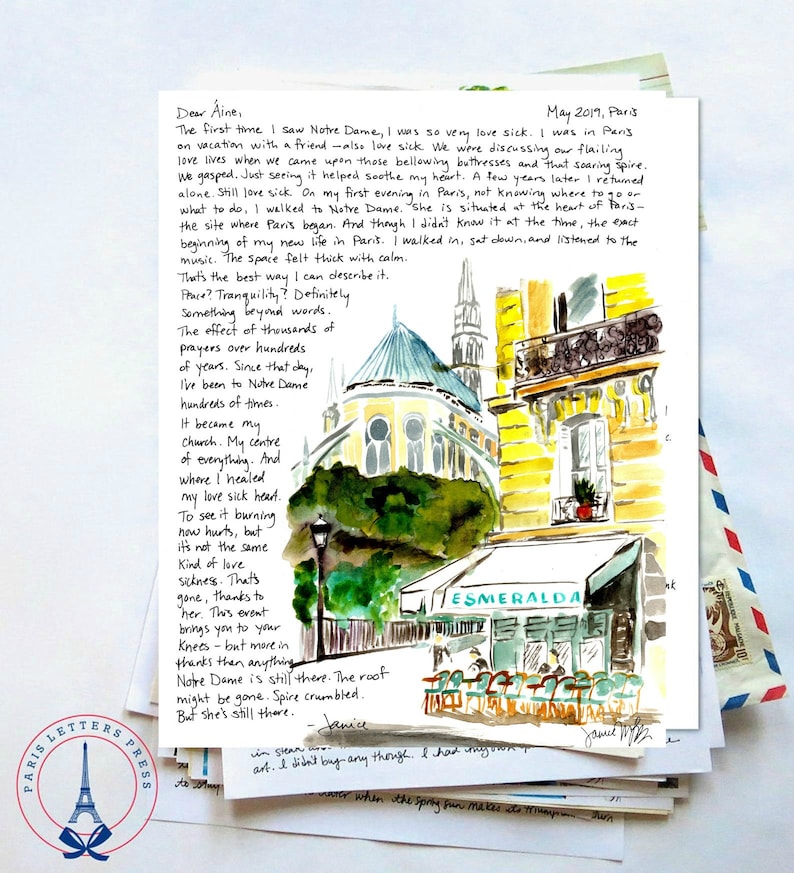 Dear Áine,
May 2019, Paris
The first time I saw Notre Dame, I was so very love sick. I was in Paris
on vacation with a friend – also love sick. We were discussing our flailing
love lives when we came upon those bellowing buttresses and that soaring spire.
We gasped. Just seeing it helped soothe my heart. A few years later I returned
alone. Still love sick. On my first evening in Paris, not knowing where to go or
what to do, I walked to Notre Dame. She is situated at the heart of Paris –
the site where Paris began. And though I didn't know it at the time, the exact
beginning of my new life in Paris. I walked in, sat down, and listened to the
music. The space felt thick with calm.
That's the best way I can describe it.
Peace? Tranquility? Definitely
something beyond words.
The effect of thousands of
prayers over hundreds
of years. Since that day,
I've been to Notre Dame
hundreds of times.
It became my
church. My centre
of everything. And
where I healed
my love sick heart.
To see it burning
now hurts, but
it's not the same
kind of love
sickness. That's
gone, thanks to
her. This event
brings you to your
knees – but more in
thanks than anything.
Notre Dame is still there. The roof
might be gone. Spire crumbled.
But she's still there.
– Janice
ESMERALDA
Janice
art. I didn't buy any though. I had my own
later when the spring sun makes its
PARIS LETTERS PRESS